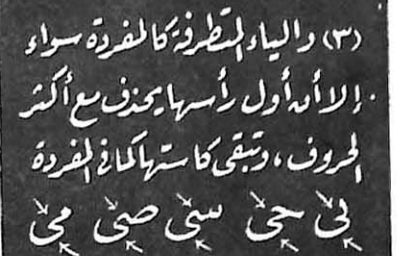 (٣) والياء المتطرفة كالمفردة سواء
إلا أن أول رأسها يحذف مع أكثر
الحروف، وتبقى كاستها كما فى المفردة
لى حى سى صى مى